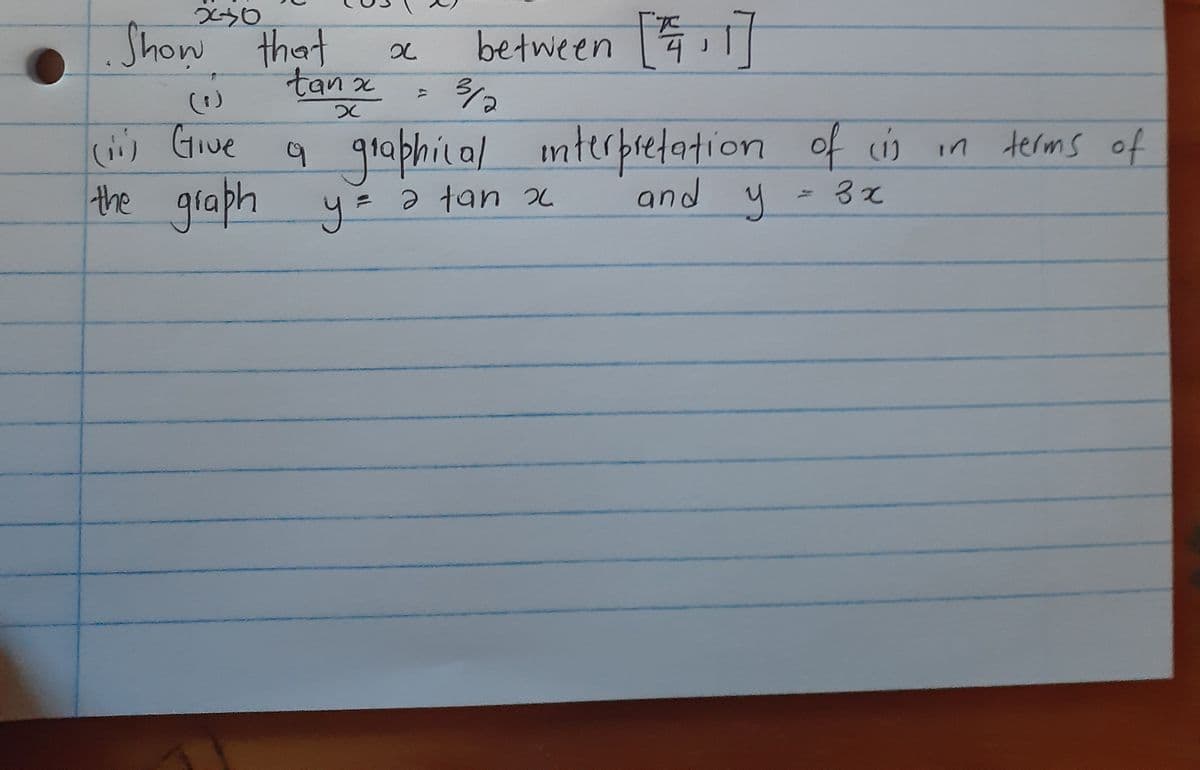 x→0
. Show that x between [π/4, 1]
(i) tan x / x = 3/2
(ii) Give a graphical interpretation of (i) in terms of
the graph y = 2 tan x and y = 3x